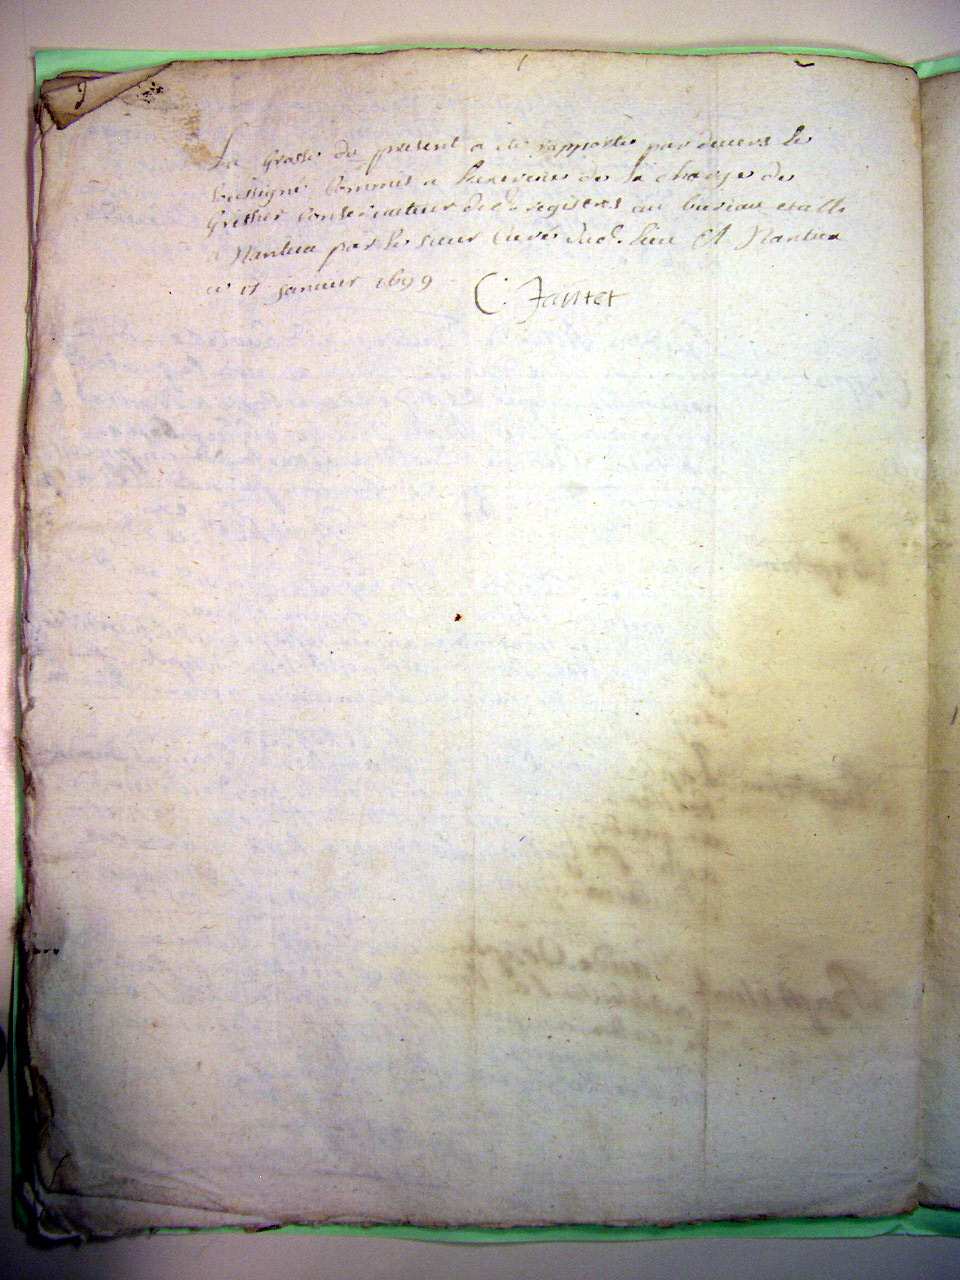 2
La Grosse du present a ete rapportée par devers le
soussigné Commis a l'exercice de la charge de
Greffier Conservateur des registres au bureau establi
a Nantua par le sieur Curé dud. lieu Et Nantua
ce 17 janvier 1699
C. Jantet